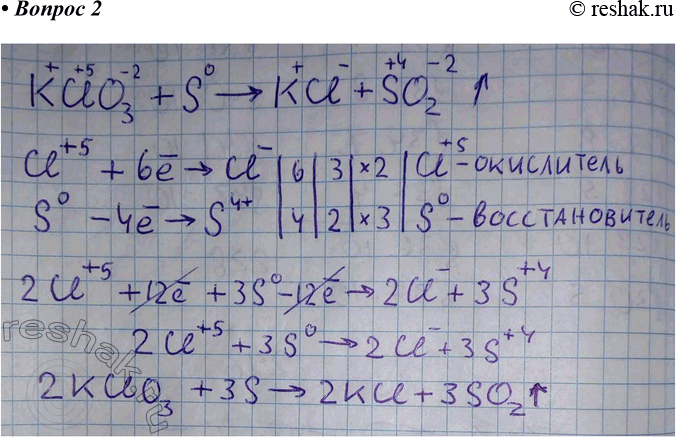 • Вопрос 2
© reshak.ru
K⁺Cl⁺⁵O₃⁻² + S⁰ → K⁺Cl⁻ + S⁺⁴O₂⁻² ↑
Cl⁺⁵ + 6ē → Cl⁻ | 6 | 3 | ×2 | Cl⁺⁵ - окислитель
S⁰ - 4ē → S⁴⁺ | 4 | 2 | ×3 | S⁰ - восстановитель
2Cl⁺⁵ + 12ē + 3S⁰ - 12ē → 2Cl⁻ + 3S⁺⁴
2Cl⁺⁵ + 3S⁰ → 2Cl⁻ + 3S⁺⁴
2KClO₃ + 3S → 2KCl + 3SO₂↑
reshak.ru